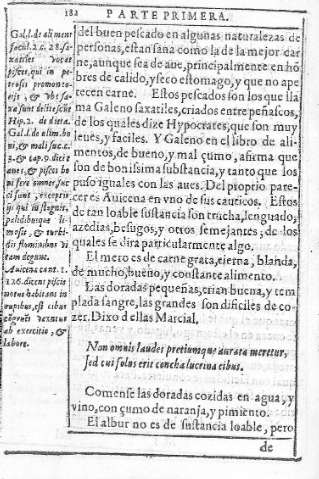 182 PARTE PRIMERA.
del buen pescado en algunas naturalezas de
personas, es tan sana como la de la mejor car
ne, aunque sea de aue, principalmente en hō
bres de calido, y seco estomago, y que no ape
tecen carne. Estos pescados son los que lla
ma Galeno saxatiles, criados entre peñascos,
de los quales dize Hypocrates, que son muy
leues, y faciles. Y Galeno en el libro de ali-
mentos, de bueno, y mal çumo, afirma que
son de bonissima substancia, y tanto que los
puso iguales con las aues. Del proprio pare-
cer es Auicena en vno de sus cauticos. Estos
de tan loable sustancia son trucha, lenguado,
azedias, besugos, y otros semejantes; de los
quales se dira particularmente algo.
El mero es de carne grata, tierna, blanda,
de mucho, bueno, y constante alimento.
Las doradas pequeñas, crian buena, y tem
plada sangre, las grandes son dificiles de co
zer. Dixo dellas Marcial.
Non omnis laudes pretiumque aurata meretur,
sed cui solus erit concha lucrina cibus.
Comense las doradas cozidas en agua, y
vino, con çumo de naranja, y pimiento.
El albur no es de sustancia loable, pero
de
Gal. l. de aliment
facul. 2. c. 28. sa-
xatiles vocat
pisces, qui in pe-
trosis promonto-
rijs,
Hip. 2. de dieta.
Gal. l. de alim. bo
ni, & mali suc. c.
3. & cap. 9. dicit
aues, & pisces bo
ni fere omnes suc
ci sunt, exceptis
ijs qui in stagnis,
paludibusque li-
mosis, & turbi-
dis fluminibus vi
tam degunt.
Auicena cant. 1.
126. dicens piscis
motus habitans in